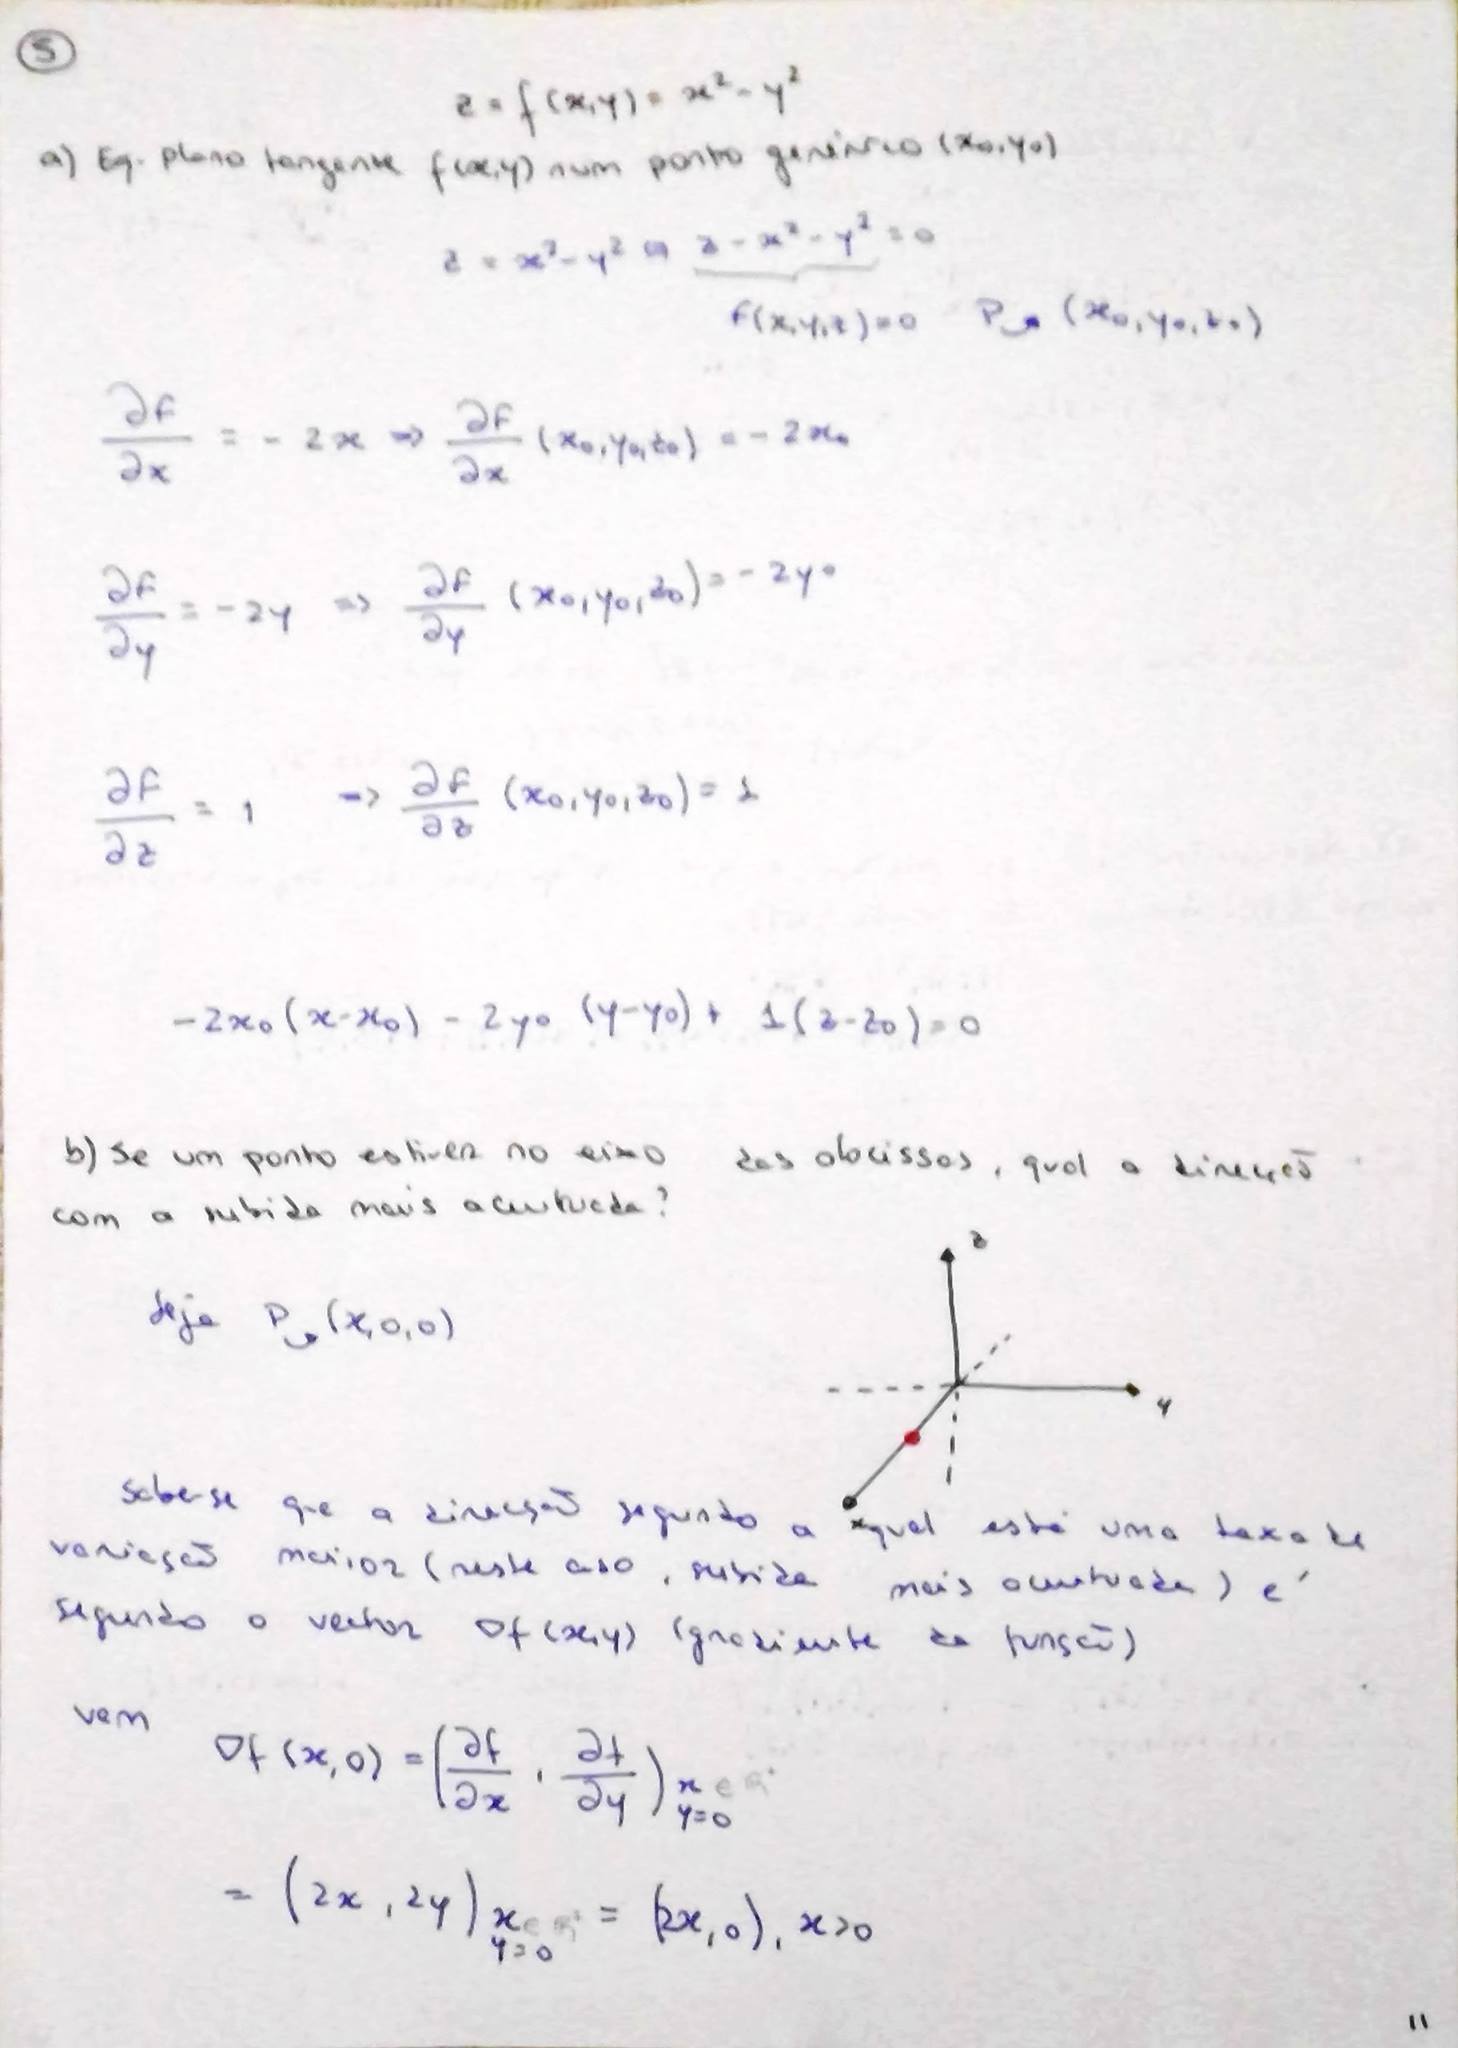 5
z = f(x,y) = x² - y²
a) Eq. plano tangente f(x,y) num ponto genérico (x₀,y₀)
z = x² - y² ⇔ z - x² - y² = 0
F(x,y,z) = 0 P ↪ (x₀, y₀, z₀)
∂F/∂x = - 2x ⇒ ∂F/∂x (x₀,y₀,z₀) = - 2x₀
∂F/∂y = - 2y ⇒ ∂F/∂y (x₀,y₀,z₀) = - 2y₀
∂F/∂z = 1 ⇒ ∂F/∂z (x₀,y₀,z₀) = 1
-2x₀ (x-x₀) - 2y₀ (y-y₀) + 1(z-z₀) = 0
b) Se um ponto estiver no eixo das abcissas, qual a direcção
com a subida mais acentuada?
z
Seja P ↪ (x,0,0)
y
x
Sabe-se que a direcção segundo a qual está uma taxa de
variação maior (neste caso, subida mais acentuada) é
segundo o vector ∇f(x,y) (gradiente da função)
vem
∇f (x,0) = (∂f/∂x , ∂f/∂y) x ∈ ℝ⁺ y=0
= (2x , 2y) x ∈ ℝ⁺ y=0 = (2x,0), x>0
11